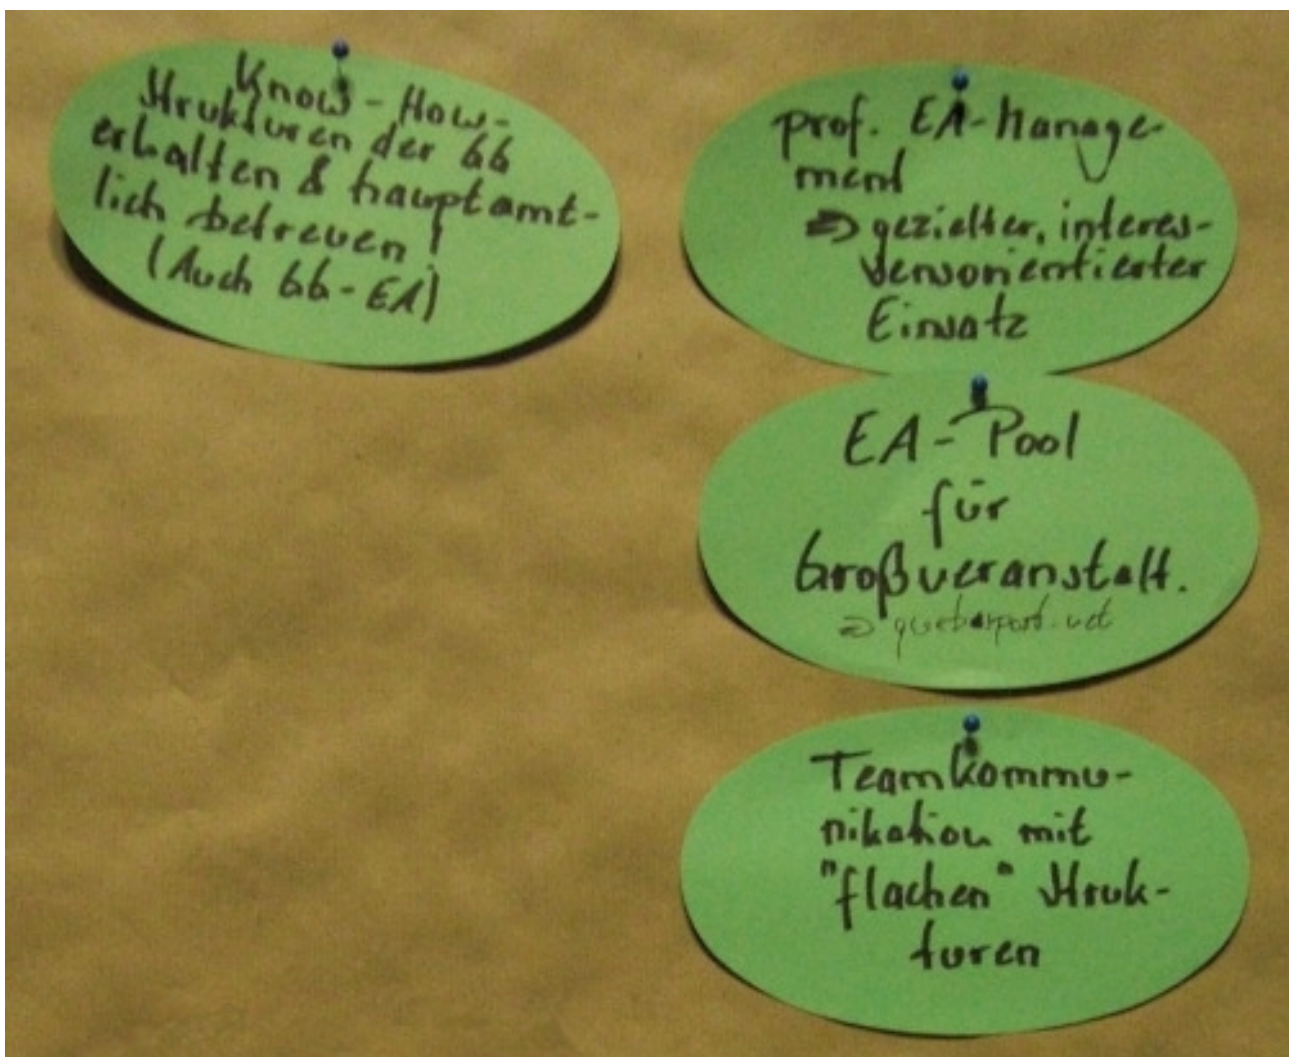 Know-How-
Strukturen der GG
erhalten & hauptamt-
lich betreuen!
(Auch GG-EA)
prof. EA-Manage-
ment
⇒ gezielter, interes-
sensorientierter
Einsatz
EA-Pool
für
Großveranstalt.
⇒
Teamkommu-
nikation mit
"flachen" Struk-
turen